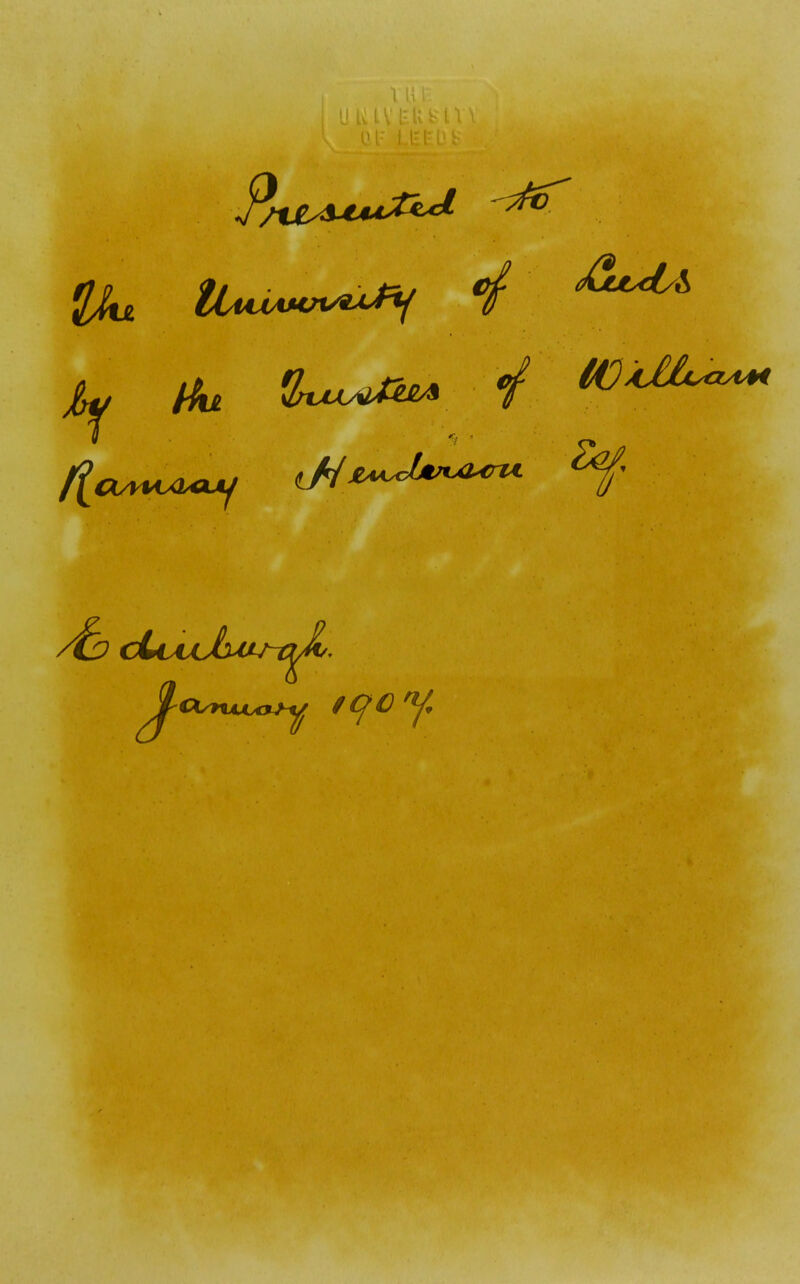 THE
UNIVERSITY
OF LEEDS
Presented to
The University of Leeds
by the Trustees of William
Ramsay Henderson Esq.
Edinburgh.
January 1907.